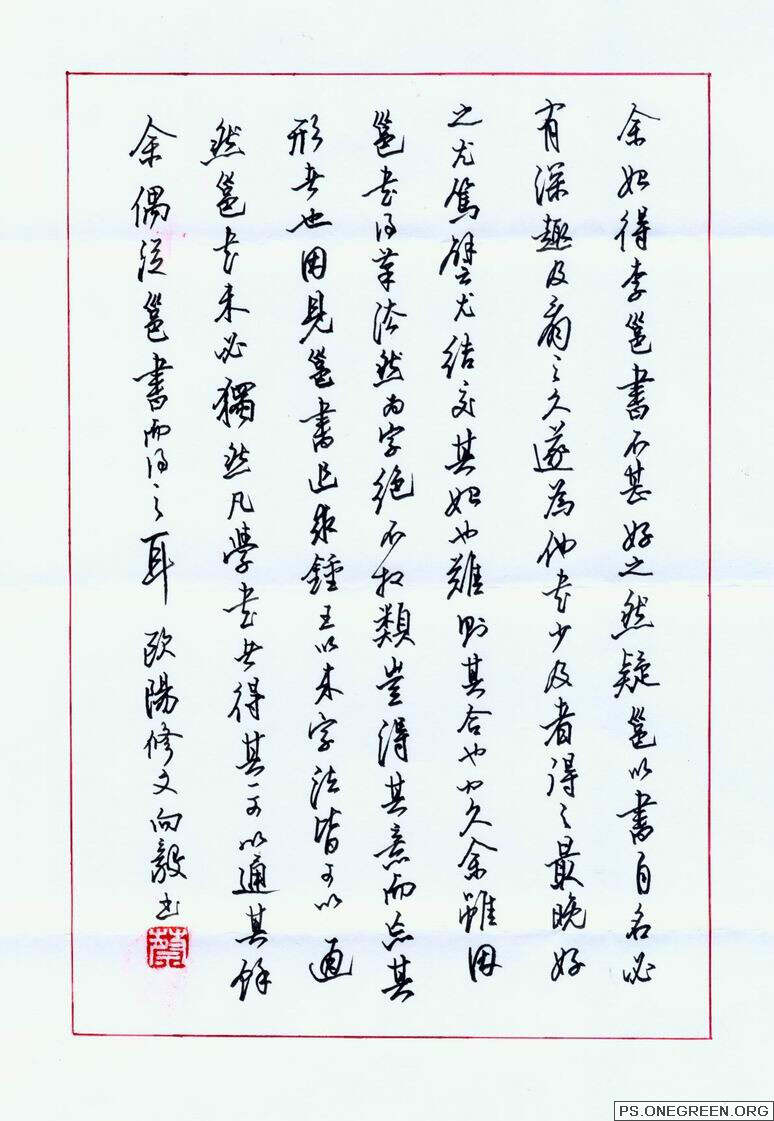 余始得李邕書不甚好之然疑邕以書自名必
有深趣及看之久遂為他书少及者得之最晚好
之尤篤譬尤結交其始也難則其合也必久余雖因
邕书得筆法然为字絕不相類豈得其意而忘其
形者也因見邕書追求鍾王以来字法皆可以通
然邕书未必獨然凡學书者得其一可以通其餘
余偶從邕書而得之耳 欧陽修文向毅书
PS.ONEGREEN.ORG